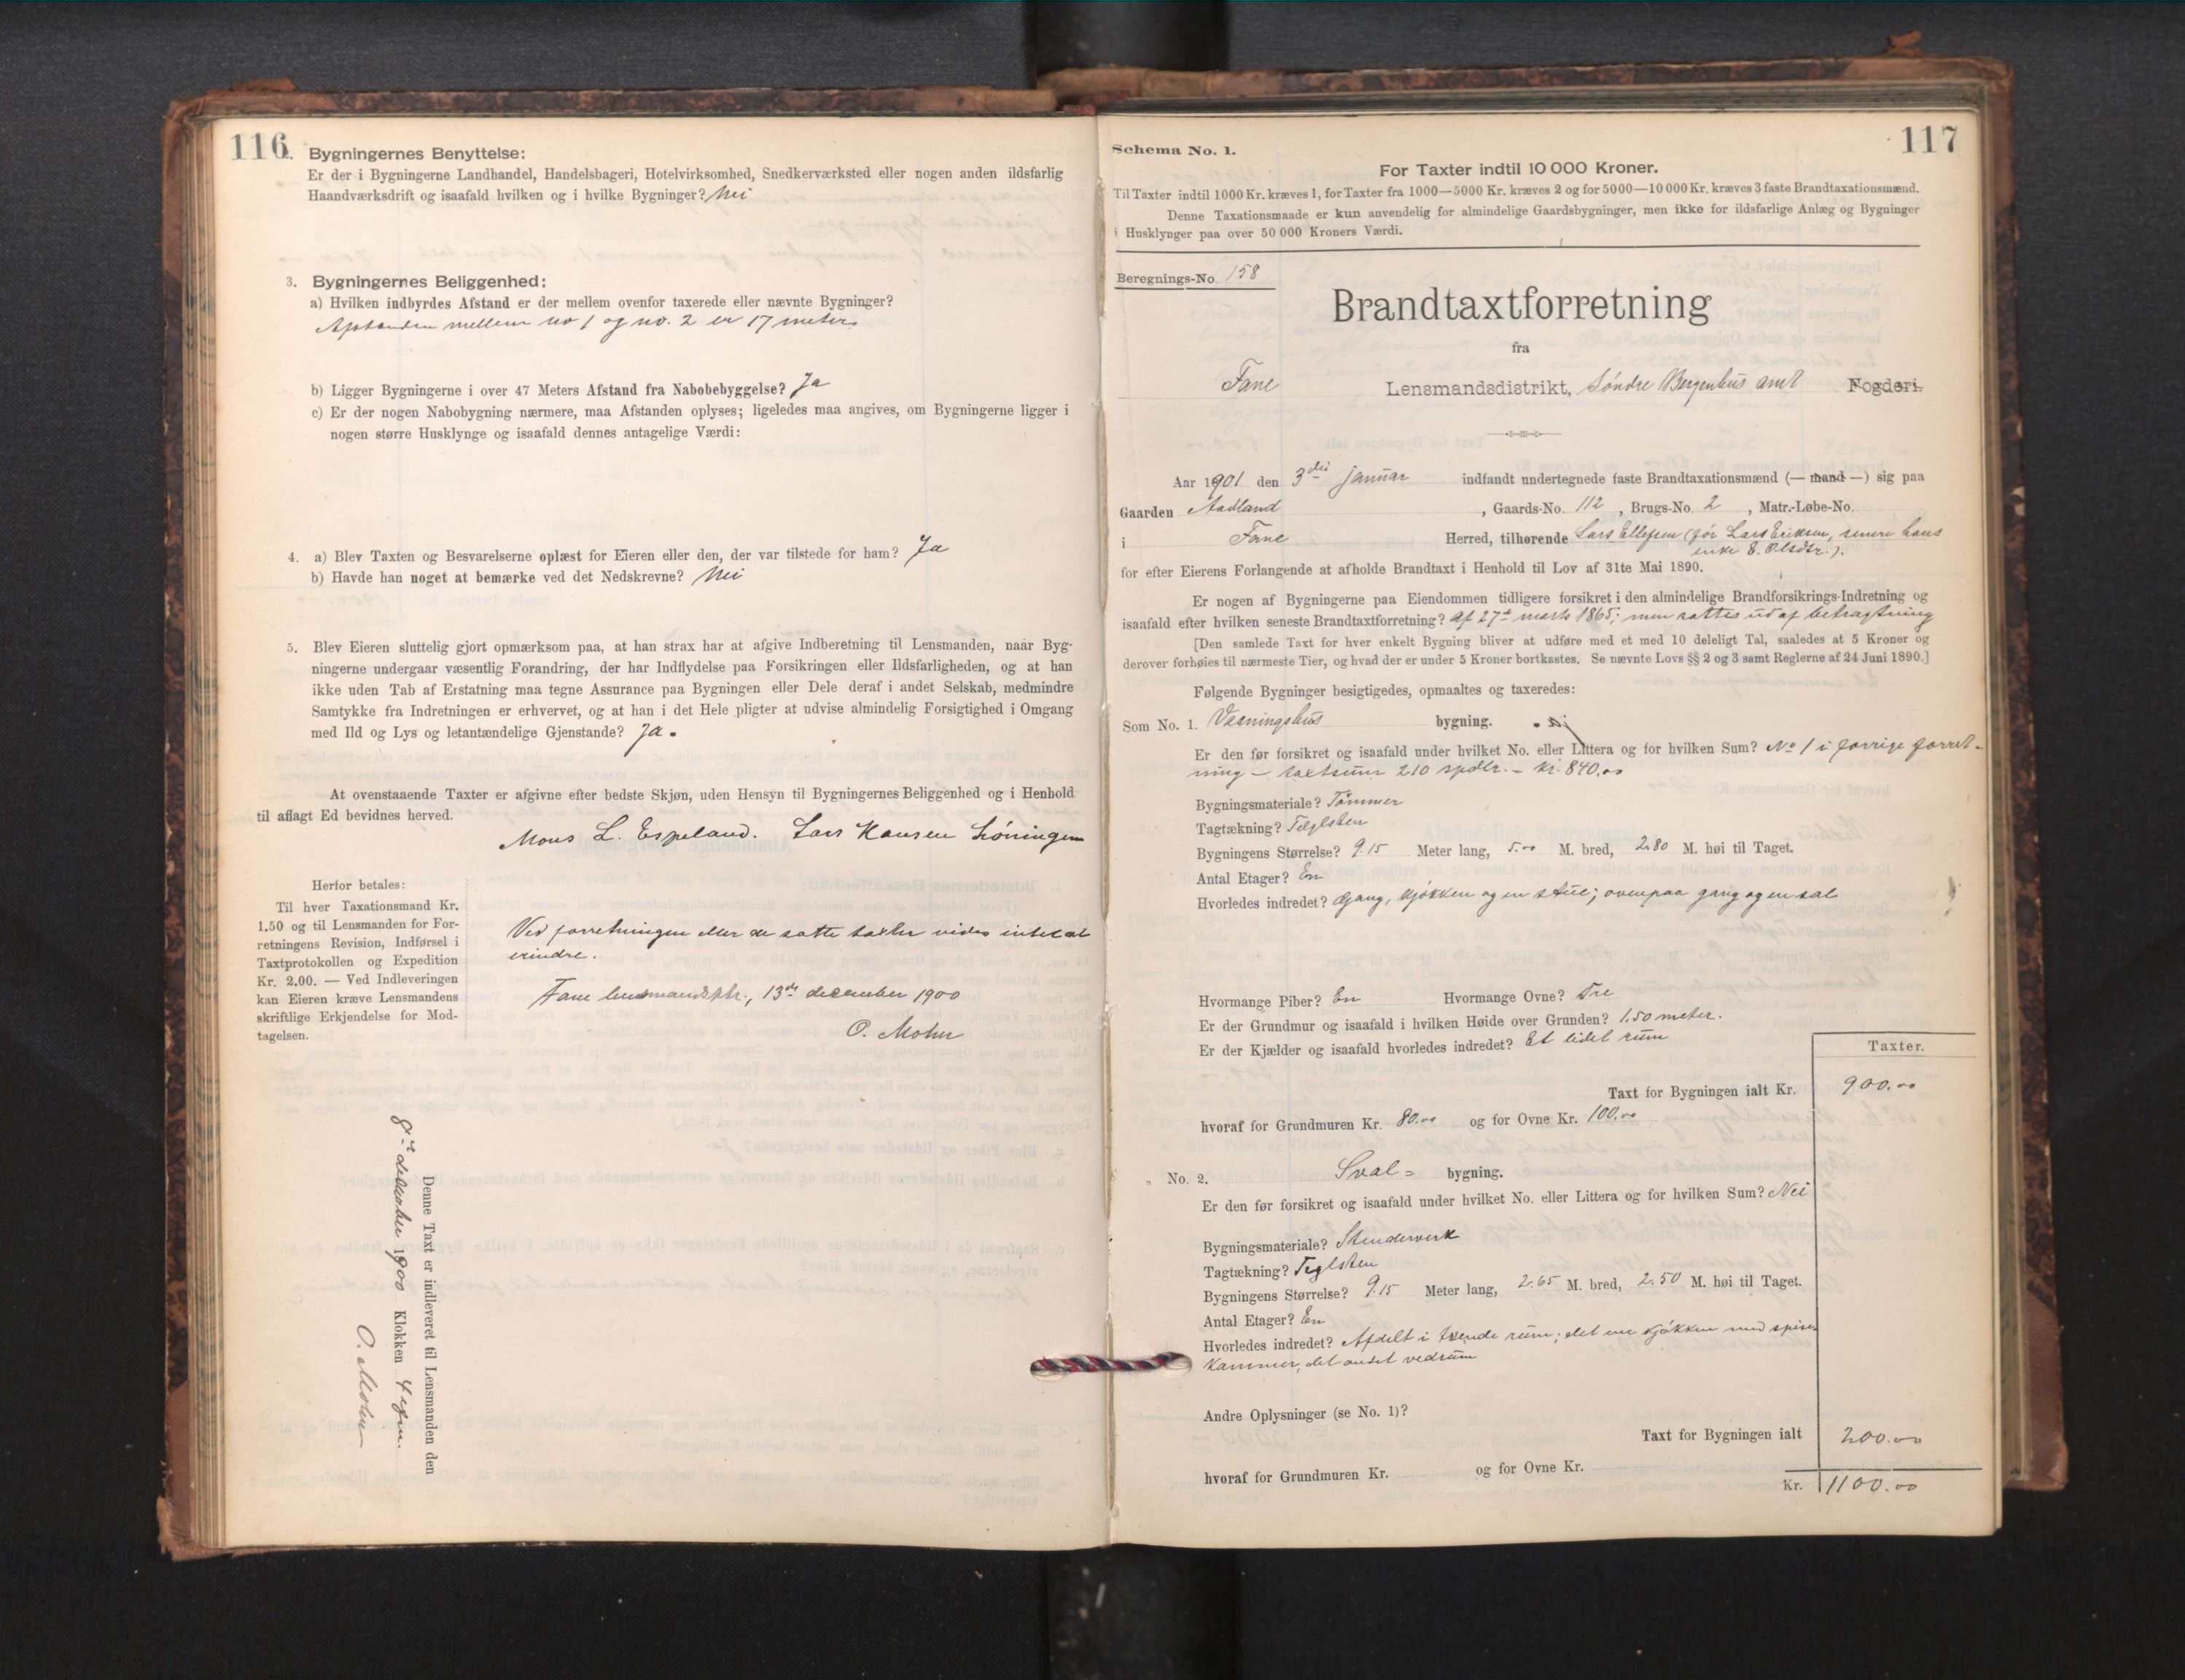 116.
Bygningernes Benyttelse:
Er der i Bygningerne Landhandel, Handelsbageri, Hotelvirksomhed, Snedkerværksted eller nogen anden ildsfarlig
Haandværksdrift og isaafald hvilken og i hvilke Bygninger? Nei
3. Bygningernes Beliggenhed:
a) Hvilken indbyrdes Afstand er der mellem ovenfor taxerede eller nævnte Bygninger?
Afstanden mellem no 1 og no. 2 er 17 meter.
b) Ligger Bygningerne i over 47 Meters Afstand fra Nabobebyggelse? Ja
c) Er der nogen Nabobygning nærmere, maa Afstanden oplyses; ligeledes maa angives, om Bygningerne ligger i
nogen større Husklynge og isaafald dennes antagelige Værdi:
4. a) Blev Taxten og Besvarelserne oplæst for Eieren eller den, der var tilstede for ham? Ja
b) Havde han noget at bemærke ved det Nedskrevne? Nei
5. Blev Eieren sluttelig gjort opmærksom paa, at han strax har at afgive Indberetning til Lensmanden, naar Byg-
ningerne undergaar væsentlig Forandring, der har Indflydelse paa Forsikringen eller Ildsfarligheden, og at han
ikke uden Tab af Erstatning maa tegne Assurance paa Bygningen eller Dele deraf i andet Selskab, medmindre
Samtykke fra Indretningen er erhvervet, og at han i det Hele pligter at udvise almindelig Forsigtighed i Omgang
med Ild og Lys og letantændelige Gjenstande? Ja.
At ovenstaaende Taxter er afgivne efter bedste Skjøn, uden Hensyn til Bygningernes Beliggenhed og i Henhold
til aflagt Ed bevidnes herved.
Mons L. Espeland. Lars Hansen Løningen
Herfor betales:
Til hver Taxationsmand Kr.
1.50 og til Lensmanden for For-
retningens Revision, Indførsel i
Taxtprotokollen og Expedition
Kr. 2.00. — Ved Indleveringen
kan Eieren kræve Lensmandens
skriftlige Erkjendelse for Mod-
tagelsen.
Ved forretningen eller de satte taxter vides intet at
erindre.
Fane lensmandsktr., 13de december 1900
O. Mohn
Denne Taxt er indleveret til Lensmanden den
8de december 1900 Klokken 4 efm.
O. Mohn
117
Schema No. 1.
For Taxter indtil 10 000 Kroner.
Til Taxter indtil 1000 Kr. kræves 1, for Taxter fra 1000—5000 Kr. kræves 2 og for 5000—10 000 Kr. kræves 3 faste Brandtaxationsmænd.
Denne Taxationsmaade er kun anvendelig for almindelige Gaardsbygninger, men ikke for ildsfarlige Anlæg og Bygninger
i Husklynger paa over 50 000 Kroners Værdi.
Beregnings-No 158
Brandtaxtforretning
fra
Fane Lensmandsdistrikt, Søndre Bergenhus amt Fogderi.
Aar 1901 den 3die januar indfandt undertegnede faste Brandtaxationsmænd (— mand —) sig paa
Gaarden Aadland, Gaards-No. 112, Brugs-No. 2, Matr.-Løbe-No.
i Fane Herred, tilhørende Lars Ellefsen (før Lars Eriksen, senere hans
enke S. Olsdtr.).
for efter Eierens Forlangende at afholde Brandtaxt i Henhold til Lov af 31te Mai 1890.
Er nogen af Bygningerne paa Eiendommen tidligere forsikret i den almindelige Brandforsikrings-Indretning og
isaafald efter hvilken seneste Brandtaxtforretning? Af 27de marts 1865; men sattes ud af betragtning
[Den samlede Taxt for hver enkelt Bygning bliver at udføre med et med 10 deleligt Tal, saaledes at 5 Kroner og
derover forhøies til nærmeste Tier, og hvad der er under 5 Kroner bortkastes. Se nævnte Lovs §§ 2 og 3 samt Reglerne af 24 Juni 1890.]
Følgende Bygninger besigtigedes, opmaaltes og taxeredes:
Som No. 1. Vaaningshus bygning.
Er den før forsikret og isaafald under hvilket No. eller Littera og for hvilken Sum? No 1 i forrige forret-
ning – taxtsum 210 spdlr. – kr. 840.00
Bygningsmateriale? Tømmer
Tagtækning? Teglsten
Bygningens Størrelse? 9.15 Meter lang, 5.00 M. bred, 2.80 M. høi til Taget.
Antal Etager? En
Hvorledes indredet? Gang, kjøkken og en stue; ovenpaa gang og en sal
Hvormange Piber? En Hvormange Ovne? Tre
Er der Grundmur og isaafald i hvilken Høide over Grunden? 1.50 meter.
Er der Kjælder og isaafald hvorledes indredet? Et lidet rum
Taxter.
Taxt for Bygningen ialt Kr. 900.00
hvoraf for Grundmuren Kr. 80.00 og for Ovne Kr. 100.00
„ No. 2. Sval= bygning.
Er den før forsikret og isaafald under hvilket No. eller Littera og for hvilken Sum? Nei
Bygningsmateriale? Stenderverk
Tagtækning? Teglsten
Bygningens Størrelse? 9.15 Meter lang, 2.65 M. bred, 2.50 M. høi til Taget.
Antal Etager? En
Hvorledes indredet? Afdelt i tvende rum; det ene kjøkken med spise
kammer, det andet vedrum
Andre Oplysninger (se No. 1)?
Taxt for Bygningen ialt 200.00
hvoraf for Grundmuren Kr. og for Ovne Kr.
Kr. 1100.00